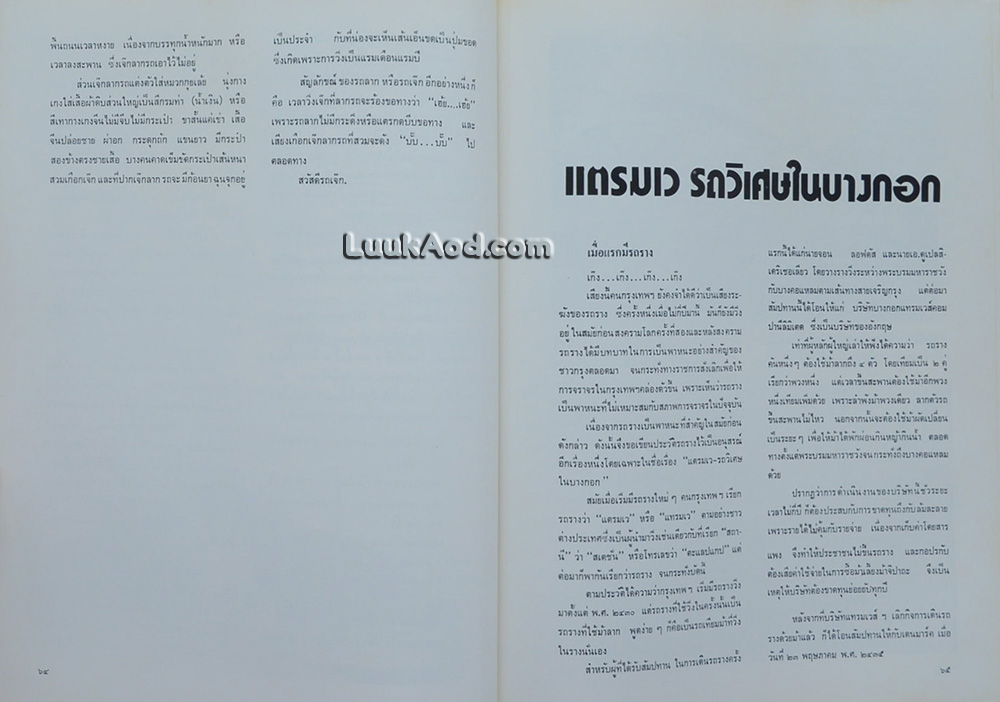 พื้นถนนเวลาหงาย เนื่องจากบรรทุกน้ำหนักมาก หรือ
เวลาลงสะพาน ซึ่งเจ๊กลากรถเอาไว้ไม่อยู่
ส่วนเจ๊กลากรถแต่งตัวใส่หมวกกุยเล้ย นุ่งกาง
เกงใส่เสื้อผ้าดิบส่วนใหญ่เป็นสีกรมท่า (น้ำเงิน) หรือ
สีเทากางเกงจีนไม่มีจีบไม่มีกระเป๋า ขาสั้นแค่เข่า เสื้อ
จีนปล่อยชาย ผ่าอก กระดุกถัก แขนยาว มีกระเป๋า
สองข้างตรงชายเสื้อ บางคนคาดเข็มขัดกระเป๋าเส้นหนา
สวมเกือกเจ๊ก และที่ปากเจ๊กลาก รถจะ มีก้อนยาฉุนจุกอยู่
เป็นประจำ กับที่น่องจะเห็นเส้นเอ็นขดเป็นปุ่มขอด
ซึ่งเกิดเพราะการวิ่งเป็นแรมเดือนแรมปี
สัญลักษณ์ ของรถลาก หรือรถเจ๊ก อีกอย่างหนึ่งก็
คือ เวลาวิ่งเจ๊กที่ลากรถจะร้องขอทางว่า “เฮ้ย....เฮ้ย”
เพราะรถลากไม่มีกระดิ่งหรือแตรกดบีบขอทาง และ
เสียงเกือกเจ๊กลากรถที่สวมจะดัง “ปั๊บ...ปั๊บ” ไป
ตลอดทาง
สวัสดีรถเจ๊ก.
๖๔
LuukAod.com
แตรมเว รถวิเศษในบางกอก
เมื่อแรกมีรถราง
เก๊ง...เก๊ง...เก๊ง...เก๊ง
เสียงนี้คนกรุงเทพฯ ยังคงจำได้ดีว่าเป็นเสียงระ-
ฆังของรถราง ซึ่งครั้งหนึ่งเมื่อไม่กี่ปีมานี้ มันก็ยังมีวิ่ง
อยู่ ในสมัยก่อน สงครามโลกครั้งที่สองและหลังสงคราม
รถรางได้มีบทบาทในการเป็นพาหนะอย่างสำคัญของ
ชาวกรุงตลอดมา จนกระทั่งทางราชการสั่งเลิกเพื่อให้
การจราจรในกรุงเทพฯคล่องตัวขึ้น เพราะเห็นว่ารถราง
เป็นพาหนะที่ไม่เหมาะสมกับสภาพการจราจรในปัจจุบัน
เนื่องจากรถรางเป็นพาหนะที่สำคัญในสมัยก่อน
ดังกล่าว ดังนั้นจึงขอเขียนประวัติรถรางไว้เป็นอนุสรณ์
อีกเรื่องหนึ่งโดยเฉพาะในชื่อเรื่อง “แตรมเว-รถวิเศษ
ในบางกอก ”
สมัยเมื่อเริ่มมีรถรางใหม่ ๆ คนกรุงเทพ ฯ เรียก
รถรางว่า “แตรมเว” หรือ “แทรมเว” ตามอย่างชาว
ต่างประเทศซึ่งเป็นผู้นำมาวิ่งเช่นเดียวกับที่เรียก “สถา-
นี” ว่า “สเตชั่น” หรือโทรเลขว่า “ตะแลปแกป” แต่
ต่อมาก็พากันเรียกว่ารถราง จนกระทั่งบัดนี้
ตามประวัติได้ความว่ากรุงเทพ ฯ เริ่มมีรถรางวิ่ง
มาตั้งแต่ พ.ศ. ๒๔๓๐ แต่รถรางที่ใช้วิ่งในครั้งนั้นเป็น
รถรางที่ใช้ม้าลาก พูดง่าย ๆ ก็คือเป็นรถเทียมม้าที่วิ่ง
ในรางนั่นเอง
สำหรับผู้ที่ได้รับสัมปทาน ในการเดินรถรางครั้ง
แรกนี้ได้แก่นายจอน ลอฟตัส และนายเอ.ดูเปลสิ-
เดริเชอเลียว โดยวางรางวิ่งระหว่างพระบรมมหาราชวัง
กับบางคอแหลมตามเส้นทางสายเจริญกรุง แต่ต่อมา
สัมปทานนี้ได้โอนให้แก่ บริษัทบางกอกแทรมเวส์คอม
ปานีลิมิเตด ซึ่งเป็นบริษัทของอังกฤษ
เท่าที่ผู้หลักผู้ใหญ่เล่าให้ฟังได้ความว่า รถราง
คันหนึ่งๆ ต้องใช้ม้าลากถึง ๔ ตัว โดยเทียมเป็น ๒ คู่
เรียกว่าพวงหนึ่ง แต่เวลาขึ้นสะพานต้องใช้ม้าอีกพวง
หนึ่งเทียมเพิ่มด้วย เพราะลำพังม้าพวงเดียว ลากตัวรถ
ขึ้นสะพานไม่ไหว นอกจากนั้นจะต้องใช้ม้าผัดเปลี่ยน
เป็นระยะๆ เพื่อให้ม้าได้พักผ่อนกินหญ้ากินน้ำ ตลอด
ทางตั้งแต่พระบรมมหาราชวังจน กระทั่งถึงบางคอแหลม
ด้วย
ปรากฏว่าการดำเนินงานของบริษัทนี้ชั่วระยะ
เวลาไม่กี่ปี ก็ต้องประสบกับการขาดทุนถึงกับล้มละลาย
เพราะรายได้ไม่คุ้มกับรายจ่าย เนื่องจากเก็บค่าโดยสาร
แพง จึงทำให้ประชาชนไม่ขึ้นรถราง และกอปรกับ
ต้องเสียค่าใช้จ่ายในการซื้อม้าเลี้ยงม้าจิปาถะ จึงเป็น
เหตุให้บริษัทต้องขาดทุนย่อยยับทุกปี
หลังจากที่บริษัทแทรมเวส์ ฯ เลิกกิจการเดินรถ
รางด้วยม้าแล้ว ก็ได้โอนสัมปทานให้กับเดนมาร์ค เมื่อ
วันที่ ๒๓ พฤษภาคม พ.ศ. ๒๔๓๕
๖๕